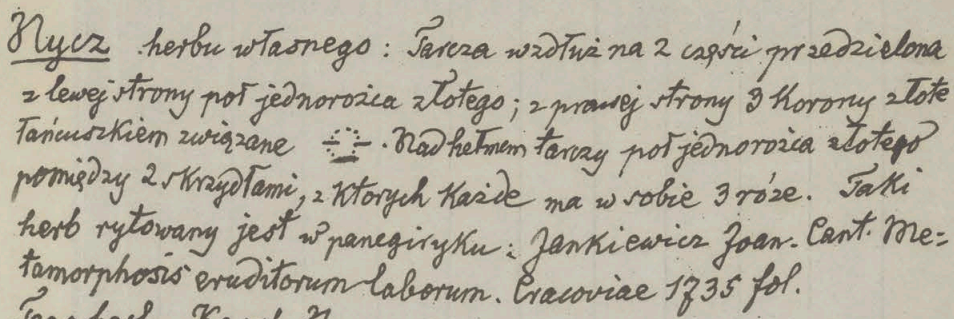 Nycz herbu własnego: Tarcza wzdłuż na 2 części przedzielona
z lewej strony poł jednorożca złotego; z prawej strony 3 Korony złote
łańcuszkiem związane . Nad hełmem tarczy poł jednorożca złotego
pomiędzy 2 skrzydłami, z których każde ma w sobie 3 róże. Taki
herb rytowany jest w panegiryku: Jankiewicz Joan. Cant. Me=
tamorphosis eruditorum laborum. Cracoviae 1735 fol.